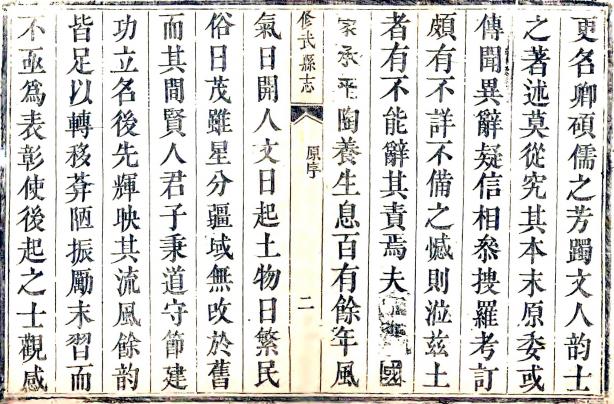 更名卿碩儒之芳躅文人韵士
之著述莫從究其本末原委或
傳聞異辭疑信相叅搜羅考訂
頗有不詳不備之憾則涖茲土
者有不能辭其責焉夫國
家承平陶養生息百有餘年風
修武縣志
原序
二
氣日開人文日起土物日繁民
俗日茂雖星分疆域無改於舊
而其間賢人君子秉道守節建
功立名後先輝映其流風餘韵
皆足以轉移莽陋振勵末習而
不亟為表彰使後起之士觀感